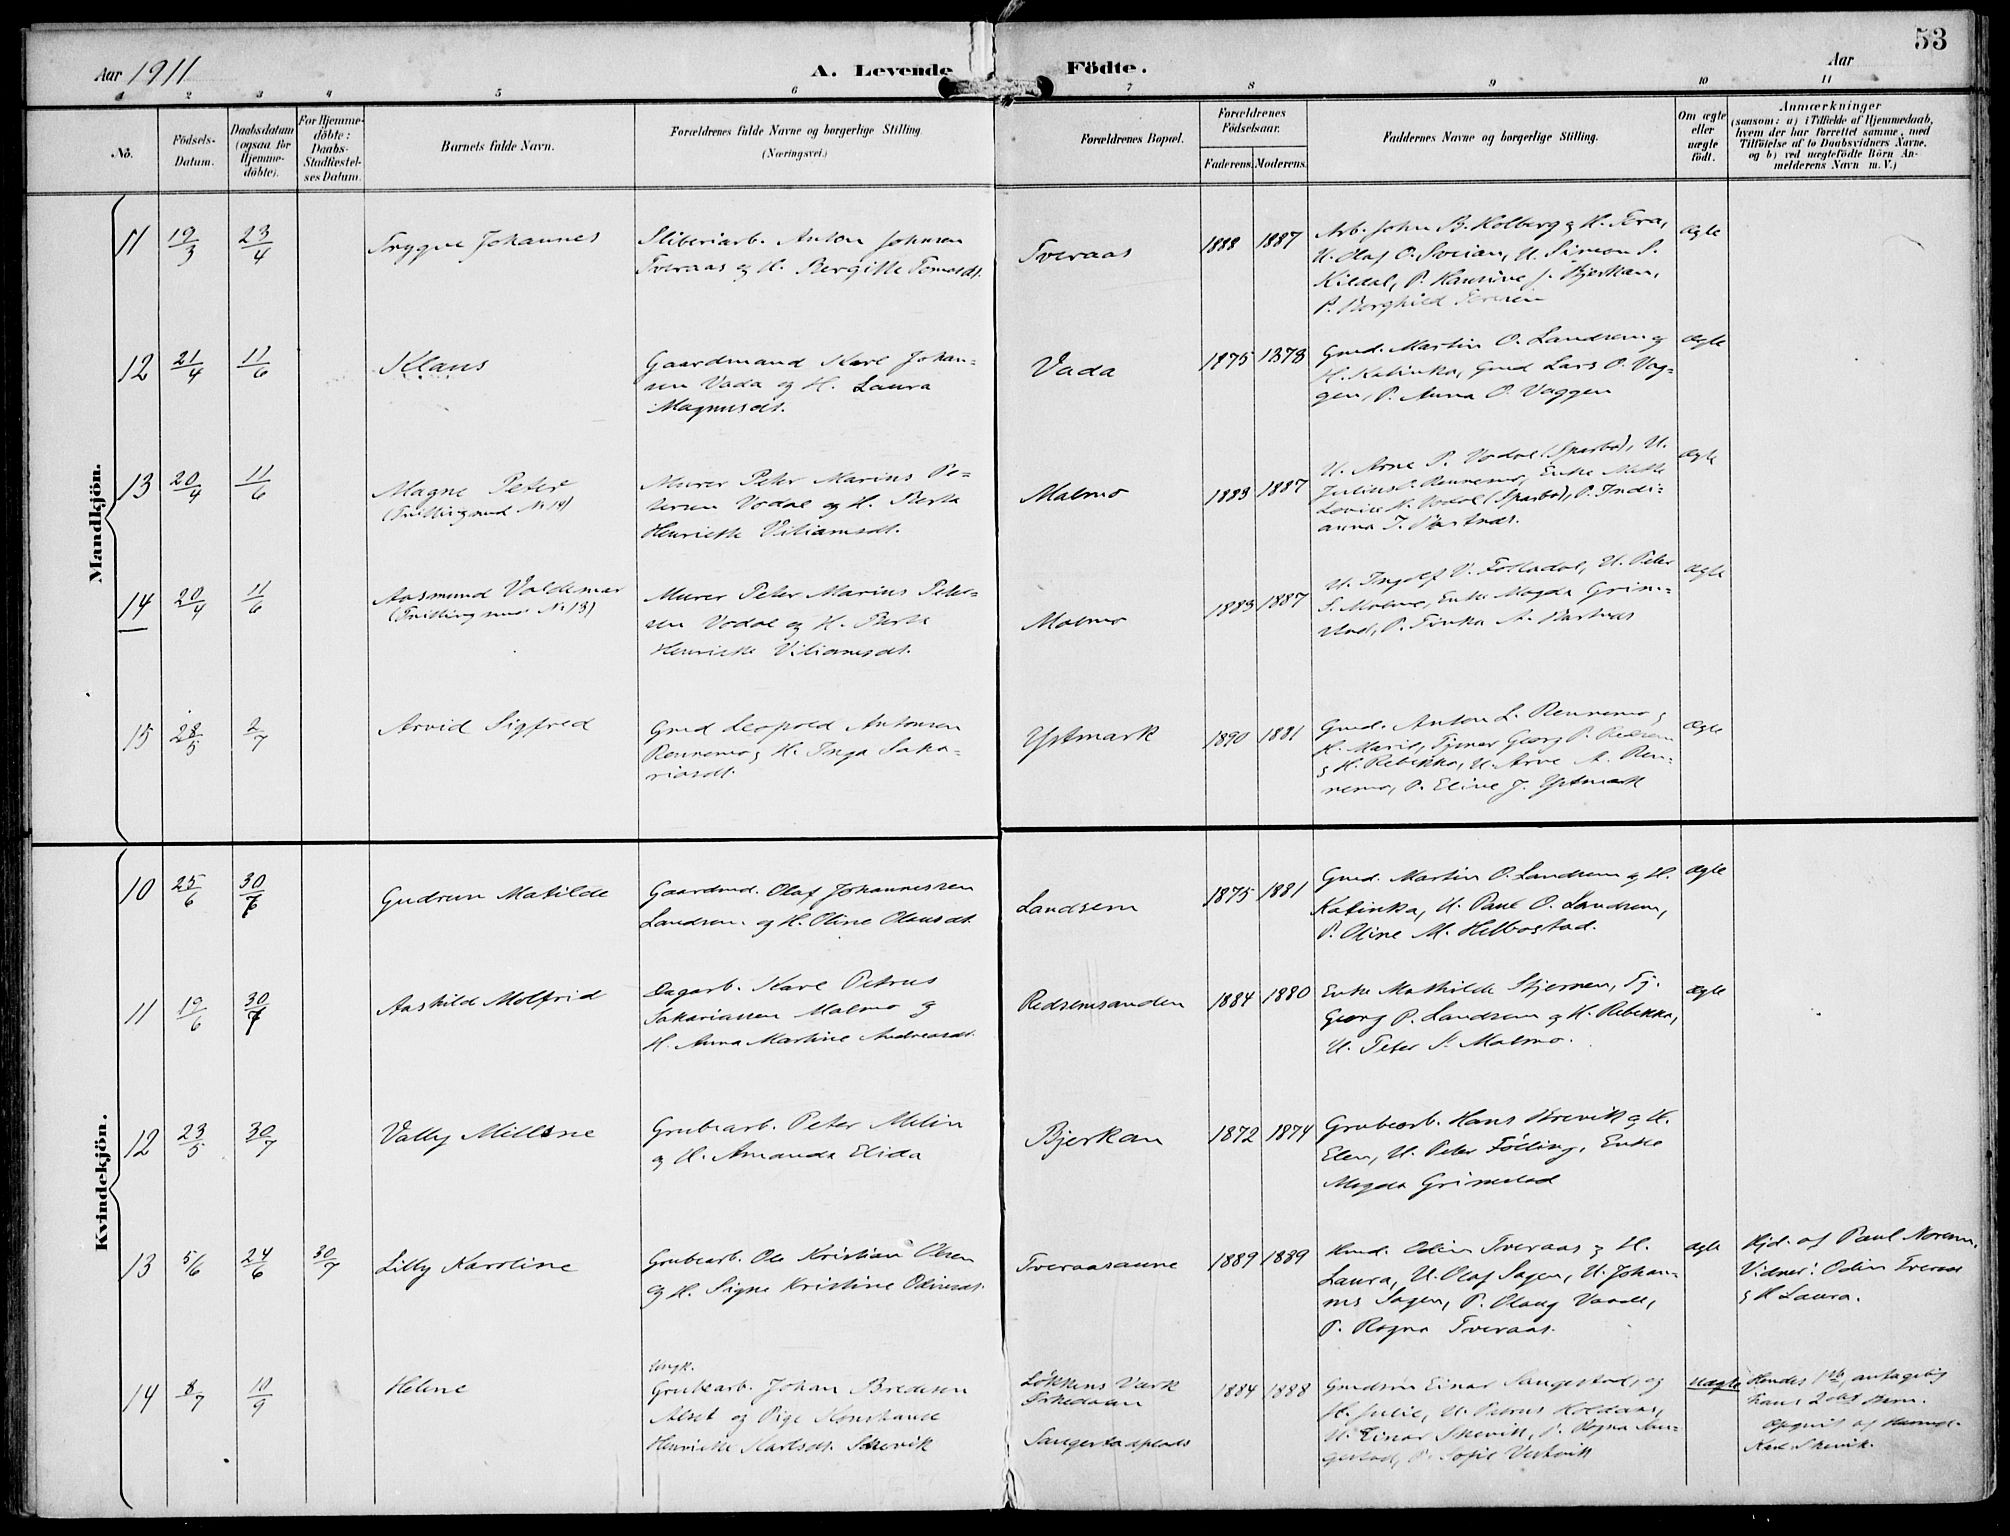 53
Aar 1911
A. Levende Födte.
Aar
1 2 3 4 5 6 7 8 9 10 11
No.
Födsels-
Datum.
Daabsdatum
(ogsaa for
Hjemme-
döbte).
For Hjemme-
döbte:
Daabs-
Stadfæstel-
ses Datum.
Barnets fulde Navn.
Forældrenes fulde Navne og borgerlige Stilling.
(Næringsvei.)
Forældrenes Bopæl.
Forældrenes
Födselsaar.
Faderens. Moderens.
Faddernes Navne og borgerlige Stilling.
Om ægte
eller
uægte
födt.
Anmærkninger
(saasom: a) i Tilfælde af Hjemmedaab,
hvem der har forrettet samme, med
Tilföielse af to Daabsvidners Navne,
og b) ved uægtefödte Börn An-
melderens Navn m. V.)
Mandkjön.
11 19/3 23/4 Trygve Johannes
Sliberiarb. Anton Johnsen
Tveraas og H. Bergitte Tomasdt.
Tveraas 1888 1887
Arb. John B. Holberg og H.
U. Olaf O. Sveian, U. Simon S.
Kildal, P. Hansine J. Bjerkan,
P. Borghild
Ægte
12 21/4 11/6 Klaus
Gaardmand Karl Johan-
sen Vada og H. Laura
Magnusdt.
Vada 1875 1878
Gmd. Martin O. Landsem og
H. Katinka, Gmd Lars O. Vag-
gen, P. Anna O. Vaggen
Ægte
13 20/4 11/6 Magne Peter
(Tvilling med Nr 14)
Murer Peter Marius Pe-
tersen Vodal og H. Berta
Henriette Viliamsdt.
Malmo 1883 1887
U. Arne P. Vodal (Sparbo), U.
Julius Rennemo, Enke Mette
Lovise N. Vodal (Sparbo), P. Indi-
anna J.
Ægte
14 20/4 11/6 Aasmund Valdemar
(Tvilling med Nr 13)
Murer Peter Marius Peter-
sen Vodal og H. Berta
Henriette Viliamsdt.
Malmo 1883 1887
U. Ingolf V. Folladal, U. Peter
S. Malmo, Enke Magda Grim-
stad, P. Tinka A.
Ægte
15 28/5 2/7 Arvid Sigfred
Gmd Leopold Antonsen
Rennemo og H. Inga Saka-
riasdt.
Ystmark 1890 1881
Gmd. Anton L. Rennemo og
H. Marie, Tjener Georg P.
og H. Rebekka, U. Arve A. Ren-
nemo, P. Eline J. Ystmark
Ægte
Kvindekjön.
10 25/6 30/7 Gudrun Matilde
Gaardmd. Olaf Johannessen
Landsem og H. Oline Olausdt.
Landsem 1875 1881
Gmd. Martin O. Landsem og H.
Katinka, U. Paul O. Landsem,
P. Oline M. Helbostad.
Ægte
11 19/6 30/7 Aashild Molfrid
Dagarb. Karl Petrus
Sakariassen Malmo og
H. Anna Martine Andreasdt.
Redsemsanden 1884 1880
Enke Mathilde Stjernen, Tj.
Georg P. Landsem og H. Rebekka,
U. Peter S. Malmo.
Ægte
12 23/5 30/7 Vally Miline
Grubearb. Peter Melin
og H. Amanda Elida
Bjerkan 1872 1874
Grubearb. Hans Brevik og H.
Elen, U. Peter Fölling, Enke
Magda Grimstad
13 5/6 24/6 30/7 Lilly Karoline
Grubearb. Ole Kristian Olsen
og H. Signe Kristine Odinsdt.
Tveraasaune 1889 1889
Hmd. Odin Tveraas og H.
Laura, U. Olaf Sagen, U. Johan-
nes Sagen, P. Olaug Vaade,
P. Ragna Tveraas.
Ægte
Hjd. af Paul Norem.
Vidner: Odin Tveraas
og H Laura.
14 8/7 10/9 Helene
Ungk.
Grubearb. Johan Bredesen
Alset og Pige Konstanse
Henriette Karlsdt. Skevik
Løkkens Værk
Orkedalen
Saugestadplads
1884 1888
Gmdsøn Einar Saugestad, og
H. Julie, U. Petrus Holdaas,
U. Einar Skevik, P. Ragna Sau-
gestad, P. Sofie Vestvik
Uægte
Hendes 1ste, antagelig
hans 2det Barn.
Opgivet af
Karl Skevik.